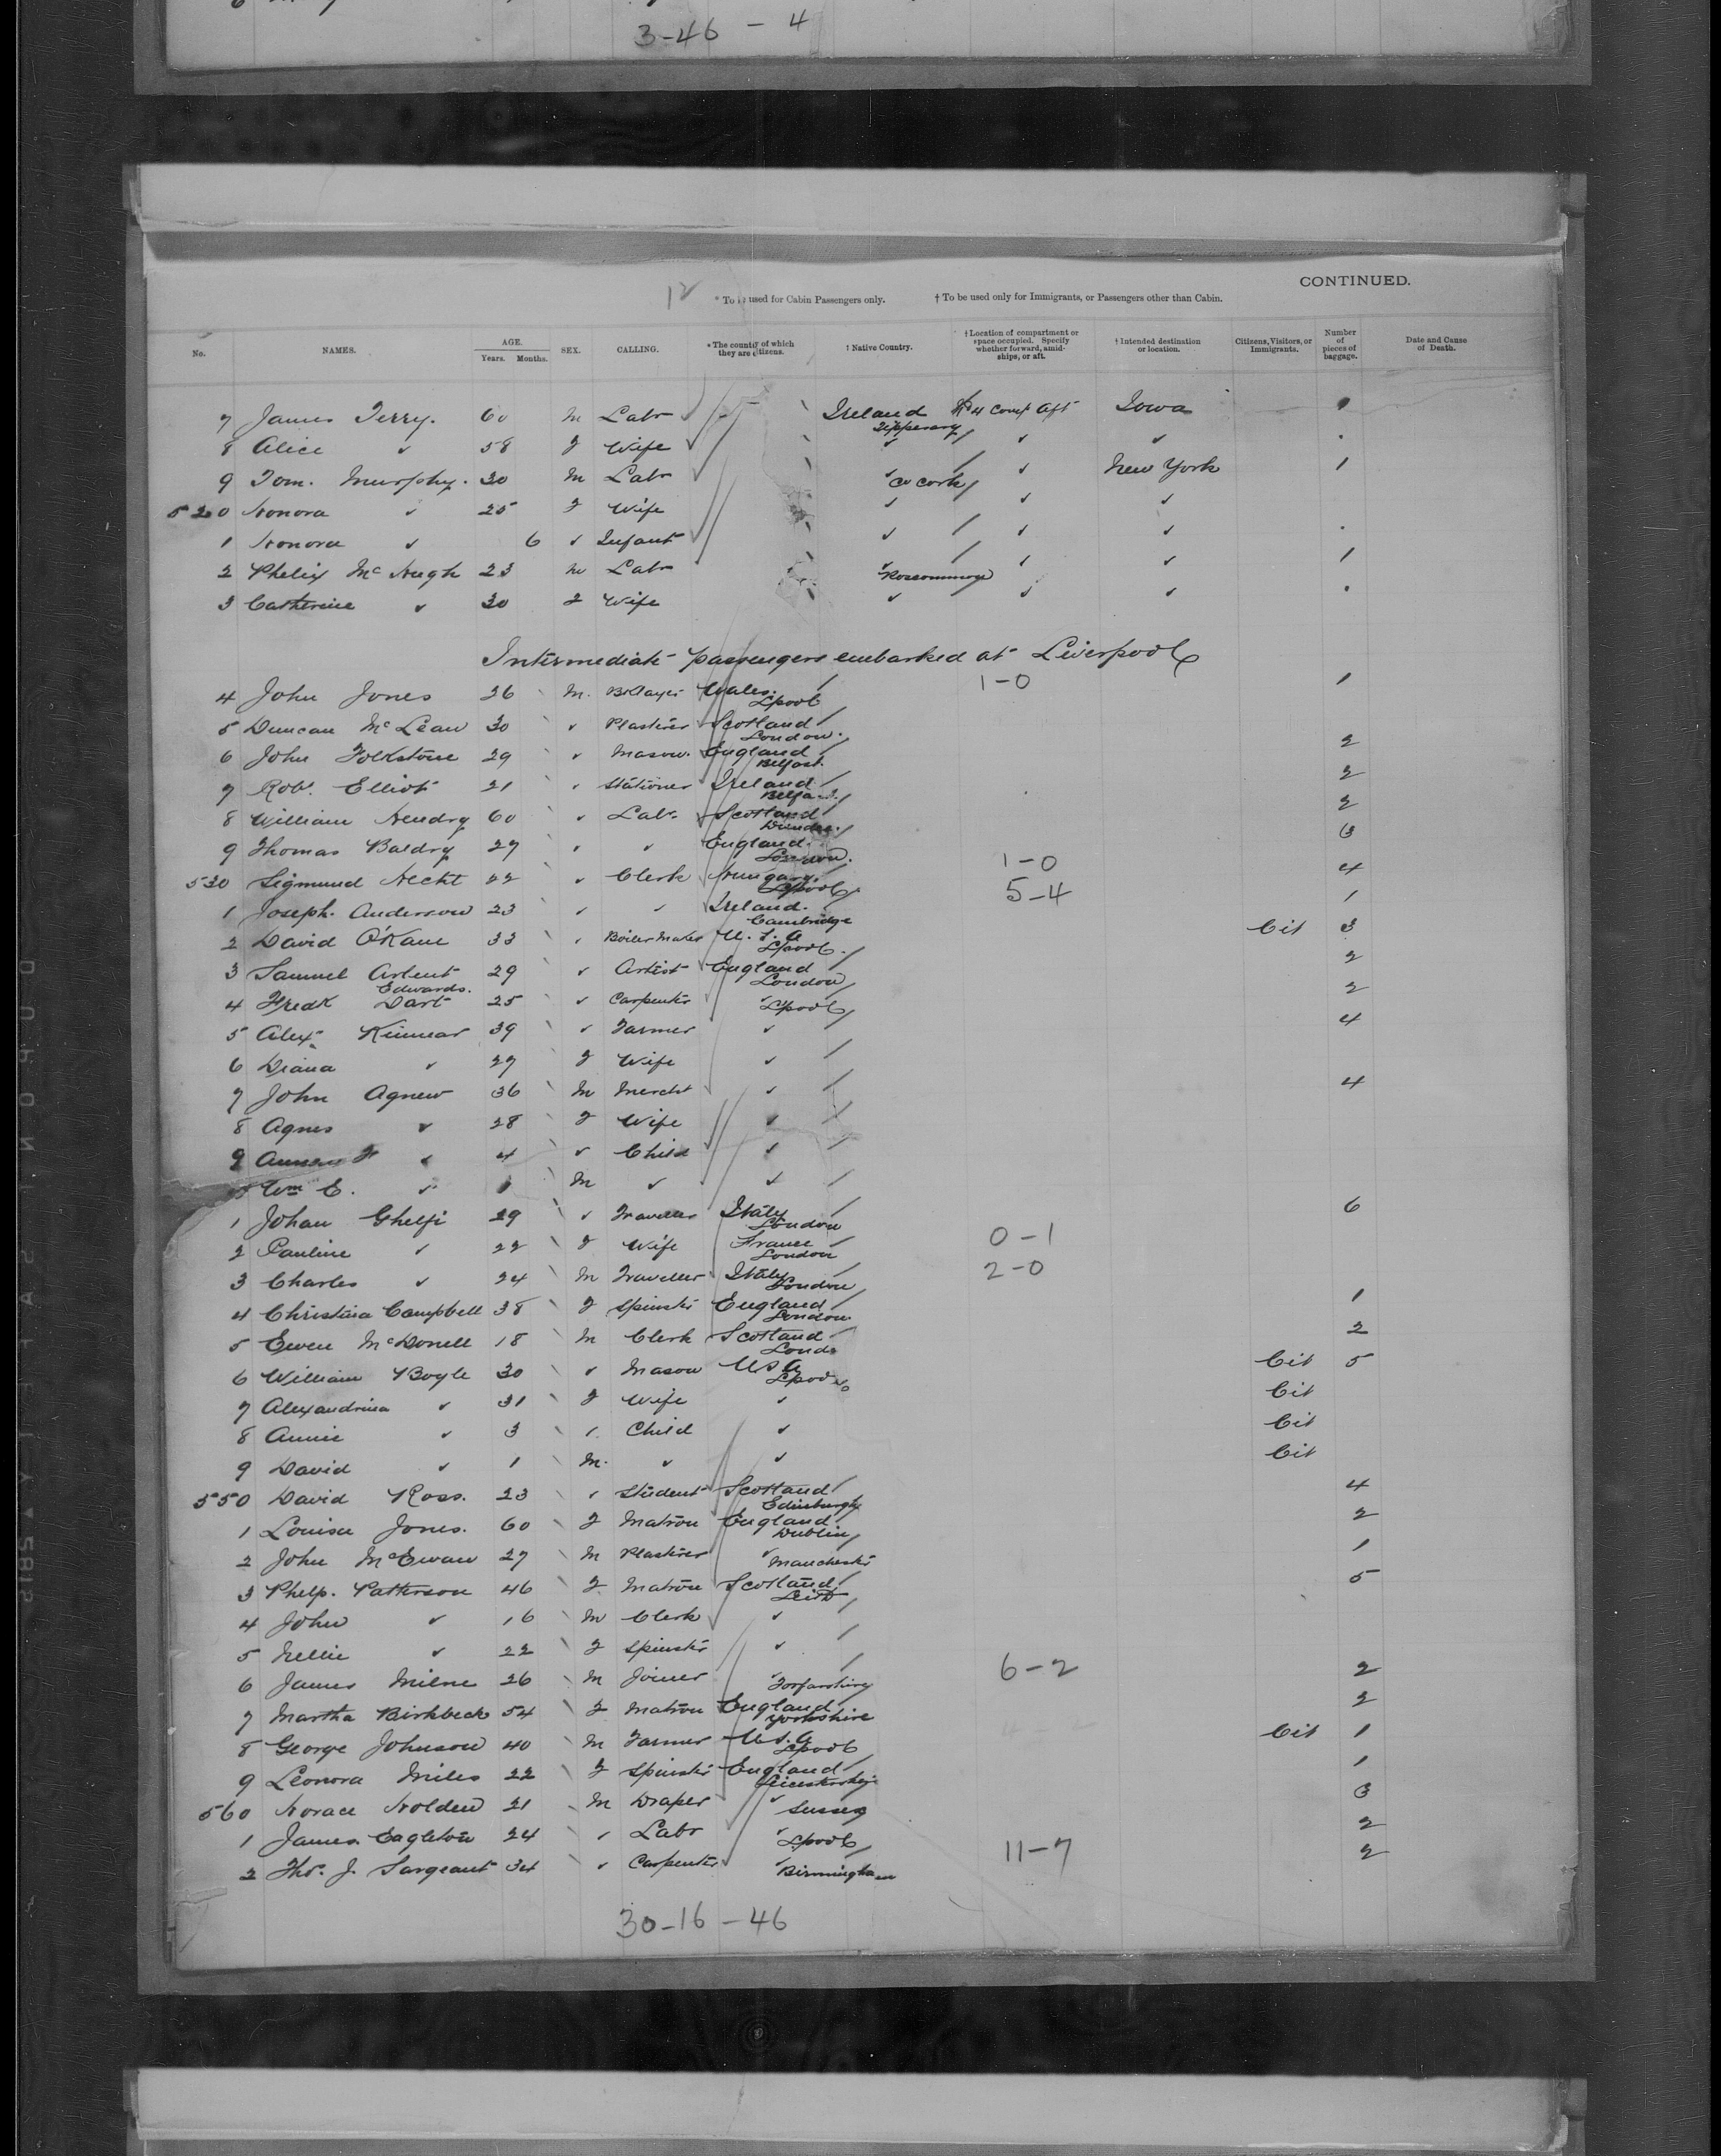 3-46 - 4
CONTINUED.
12 * To be used for Cabin Passengers only. † To be used only for Immigrants, or Passengers other than Cabin.
No. NAMES. AGE. Years. Months. SEX. CALLING. * The country of which they are citizens. † Native Country. † Location of compartment or space occupied. Specify whether forward, amidships, or aft. † Intended destination or location. Citizens, Visitors, or Immigrants. Number of pieces of baggage. Date and Cause of Death.
7 James Terry. 60 M Labr Ireland Tipperary No 4 Comp Aft Iowa 1
8 Alice ✓ 58 F Wife ✓ ✓ ✓
9 Tom. Murphy. 30 M Labr ✓ Co Cork ✓ New York 1
520 Honora ✓ 25 F Wife ✓ ✓ ✓
1 Honora ✓ 6 ✓ Infant ✓ ✓ ✓
2 Phelix McHugh 23 M Labr ✓ Roscommon ✓ ✓ 1
3 Catherine ✓ 30 F Wife ✓ ✓ ✓
Intermediate passengers embarked at Liverpool
4 John Jones 26 M. Wales. Lpool 1-0 1
5 Duncan McLean 30 ✓ Plasterer Scotland London.
6 John Folkstone 29 ✓ Mason. England Belfast. 2
7 Robt. Elliot 21 ✓ Stationer Ireland Belfast. 2
8 William Hendry 60 ✓ Labr. Scotland Dundee. 2
9 Thomas Baldry 27 ✓ ✓ England. London. 3
530 Sigmund Hecht 22 ✓ Clerk Hungary. Lpool 1-0 4
1 Joseph. Anderson 23 ✓ ✓ Ireland. Cambridge 5-4 1
2 David O'Kane 33 ✓ Boiler Maker U.S.A Lpool. Cit 3
3 Samuel Arlent 29 ✓ Artist England London 2
4 Fredk Edwards. Dart 25 ✓ Carpenter ✓ Lpool 2
5 Alex. Kinnear 39 ✓ Farmer ✓ 4
6 Diana ✓ 27 F Wife ✓
7 John Agnew 36 M Mercht ✓ 4
8 Agnes ✓ 28 F Wife ✓
9 ✓ 4 ✓ Child ✓
Wm E. ✓ M ✓ ✓
1 Johan Ghelfi 29 ✓ Traveller Italy London 6
2 Pauline ✓ 22 F Wife France London 0-1
3 Charles ✓ 24 M Traveller Italy London 2-0
4 Christina Campbell 38 F Spinster England London 1
5 Ewen McDonell 18 M Clerk Scotland Londn 2
6 William Boyle 30 ✓ Mason USA Lpool Cit 5
7 Alexandrina ✓ 31 F Wife ✓ Cit
8 Annie ✓ 3 ✓ Child ✓ Cit
9 David ✓ 1 M. ✓ ✓ Cit
550 David Ross. 23 ✓ Student Scotland Edinburgh 4
1 Louisa Jones. 60 F Matron England Dublin 2
2 John McEwan 27 M Plasterer ✓ Manchester 1
3 Phelp. Patterson 46 F Matron Scotland Leith 5
4 John ✓ 16 M Clerk ✓
5 Nellie ✓ 22 F Spinster ✓
6 James Milne 26 M Joiner ✓ Forfarshire 6-2 2
7 Martha Birkbeck 54 F Matron England Yorkshire 2
8 George Johnson 40 M Farmer U.S.A Lpool Cit 1
9 Leonora Miles 22 F Spinster England Leicestershire 1
560 Horace Holden 21 M Draper ✓ Sussex 3
1 James. Eagleton 24 ✓ Labr ✓ Lpool 2
2 Thos. J. Sargeant 34 ✓ Carpenter ✓ Birmingham 11-7 2
30-16-46